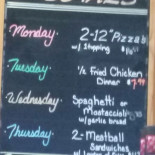 Monday: 2-12" Pizzas
w/ 1 topping
Tuesday: ½ Fried Chicken
Dinner $7.99
Wednesday: Spaghetti or
Mostaccioli
w/ garlic bread
Thursday: 2-Meatball
Sandwiches